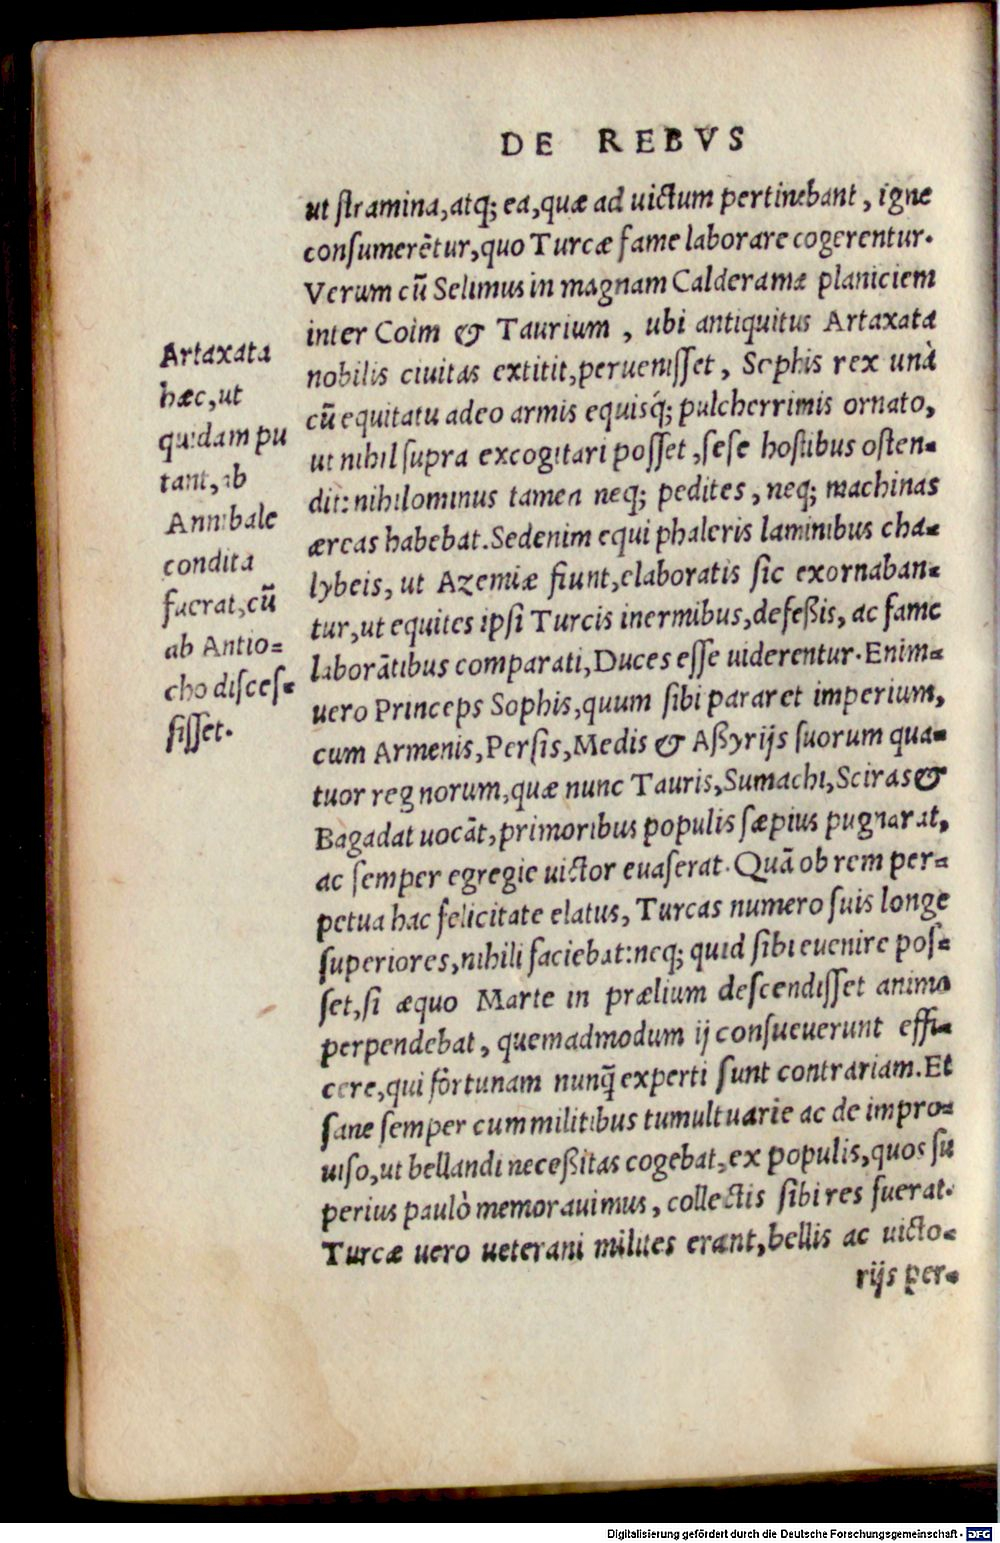 DE REBVS
ut ſtramina, atq; ea, quæ ad uictum pertinebant, igne
conſumerētur, quo Turcæ fame laborare cogerentur.
Verum cū Selimus in magnam Calderamæ planiciem
inter Coim & Taurium, ubi antiquitus Artaxata
nobilis ciuitas extitit, perueniſſet, Sophis rex unà
cū equitatu adeo armis equisq́; pulcherrimis ornato,
ut nihil ſupra excogitari poſſet, ſeſe hoſtibus oſten-
dit: nihilominus tamen neq; pedites, neq; machinas
æreas habebat. Sedenim equi phaleris laminibus cha-
lybeis, ut Azemiæ fiunt, elaboratis ſic exornaban-
tur, ut equites ipſi Turcis inermibus, defeßis, ac fame
laborātibus comparati, Duces eſſe uiderentur. Enim-
uero Princeps Sophis, quum ſibi pararet imperium,
cum Armenis, Perſis, Medis & Aßyrijs ſuorum qua-
tuor regnorum, quæ nunc Tauris, Sumachi, Sciras &
Bagadat uocāt, primoribus populis ſæpius pugnarat,
ac ſemper egregie uictor euaſerat. Quā ob rem per-
petua hac felicitate elatus, Turcas numero ſuis longe
ſuperiores, nihili faciebat: neq; quid ſibi euenire poſ-
ſet, ſi æquo Marte in prælium deſcendiſſet animo
perpendebat, quemadmodum ij conſueuerunt effi-
cere, qui fortunam nunq̄ experti ſunt contrariam. Et
ſane ſemper cum militibus tumultuarie ac de impro-
uiſo, ut bellandi neceßitas cogebat, ex populis, quos ſu
perius paulò memorauimus, collectis ſibi res fuerat.
Turcæ uero ueterani milites erant, bellis ac uicto-
rijs per-
Artaxata
hæc, ut
quidam pu
tant, ab
Annibale
condita
fuerat, cū
ab Antio-
cho diſceſ-
ſiſſet.
Digitalisierung gefördert durch die Deutsche Forschungsgemeinschaft - DFG